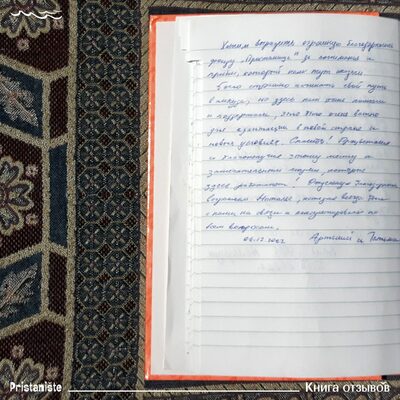 Хотим выразить огромную благодарность
фонду "Пристанище" за понимание и
приём, который нам тут
было страшно начинать свой путь
в никуда, но здесь нам очень помогли
и поддержали, это это очень важно
для адаптации в новой стране и
новых условиях. Спасибо!
и этому месту и
замечательным людям, которые
здесь работают! Отдельную благодарность
Наталье, которая всегда была
с нами на связи и консультировала по
всем вопросам.
06.12.2022 Артемий и Татьяна
Pristanište
Книга отзывов